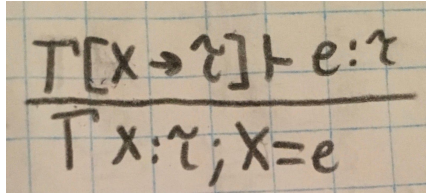 Γ[x→τ]⊢ e:τ
Γ x:τ; x=e